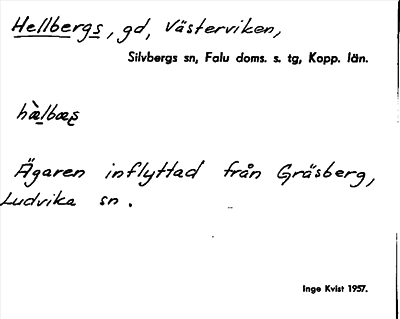 Hellbergs, gd, Västerviken,
Silvbergs sn, Falu doms. s. tg, Kopp. län.
hὰlbæș
Ägaren inflyttad från Gräsberg,
Ludvika sn.
Inge Kvist 1957.